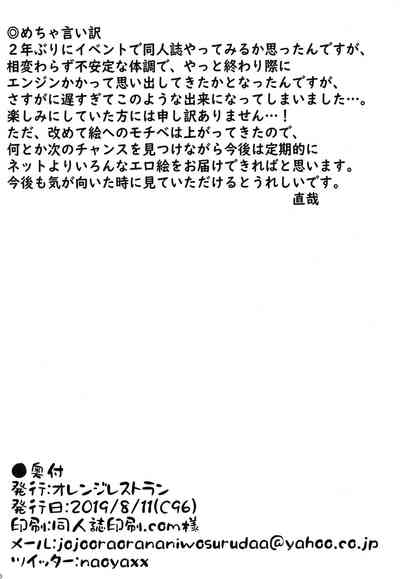 ◎めちゃ言い訳
２年ぶりにイベントで同人誌やってみるか思ったんですが、
相変わらず不安定な体調で、やっと終わり際に
エンジンかかって思い出してきたかとなったんですが、
さすがに遅すぎてこのような出来になってしまいました…。
楽しみにしていた方には申し訳ありません…！
ただ、改めて絵へのモチベは上がってきたので、
何とか次のチャンスを見つけながら今後は定期的に
ネットよりいろんなエロ絵をお届けできればと思います。
今後も気が向いた時に見ていただけるとうれしいです。
直哉
●奥付
発行:オレンジレストラン
発行日:2019/8/11(C96)
印刷:同人誌印刷.com様
メール:jojooraorananiwosurudaa@yahoo.co.jp
ツイッター:naoyaxx